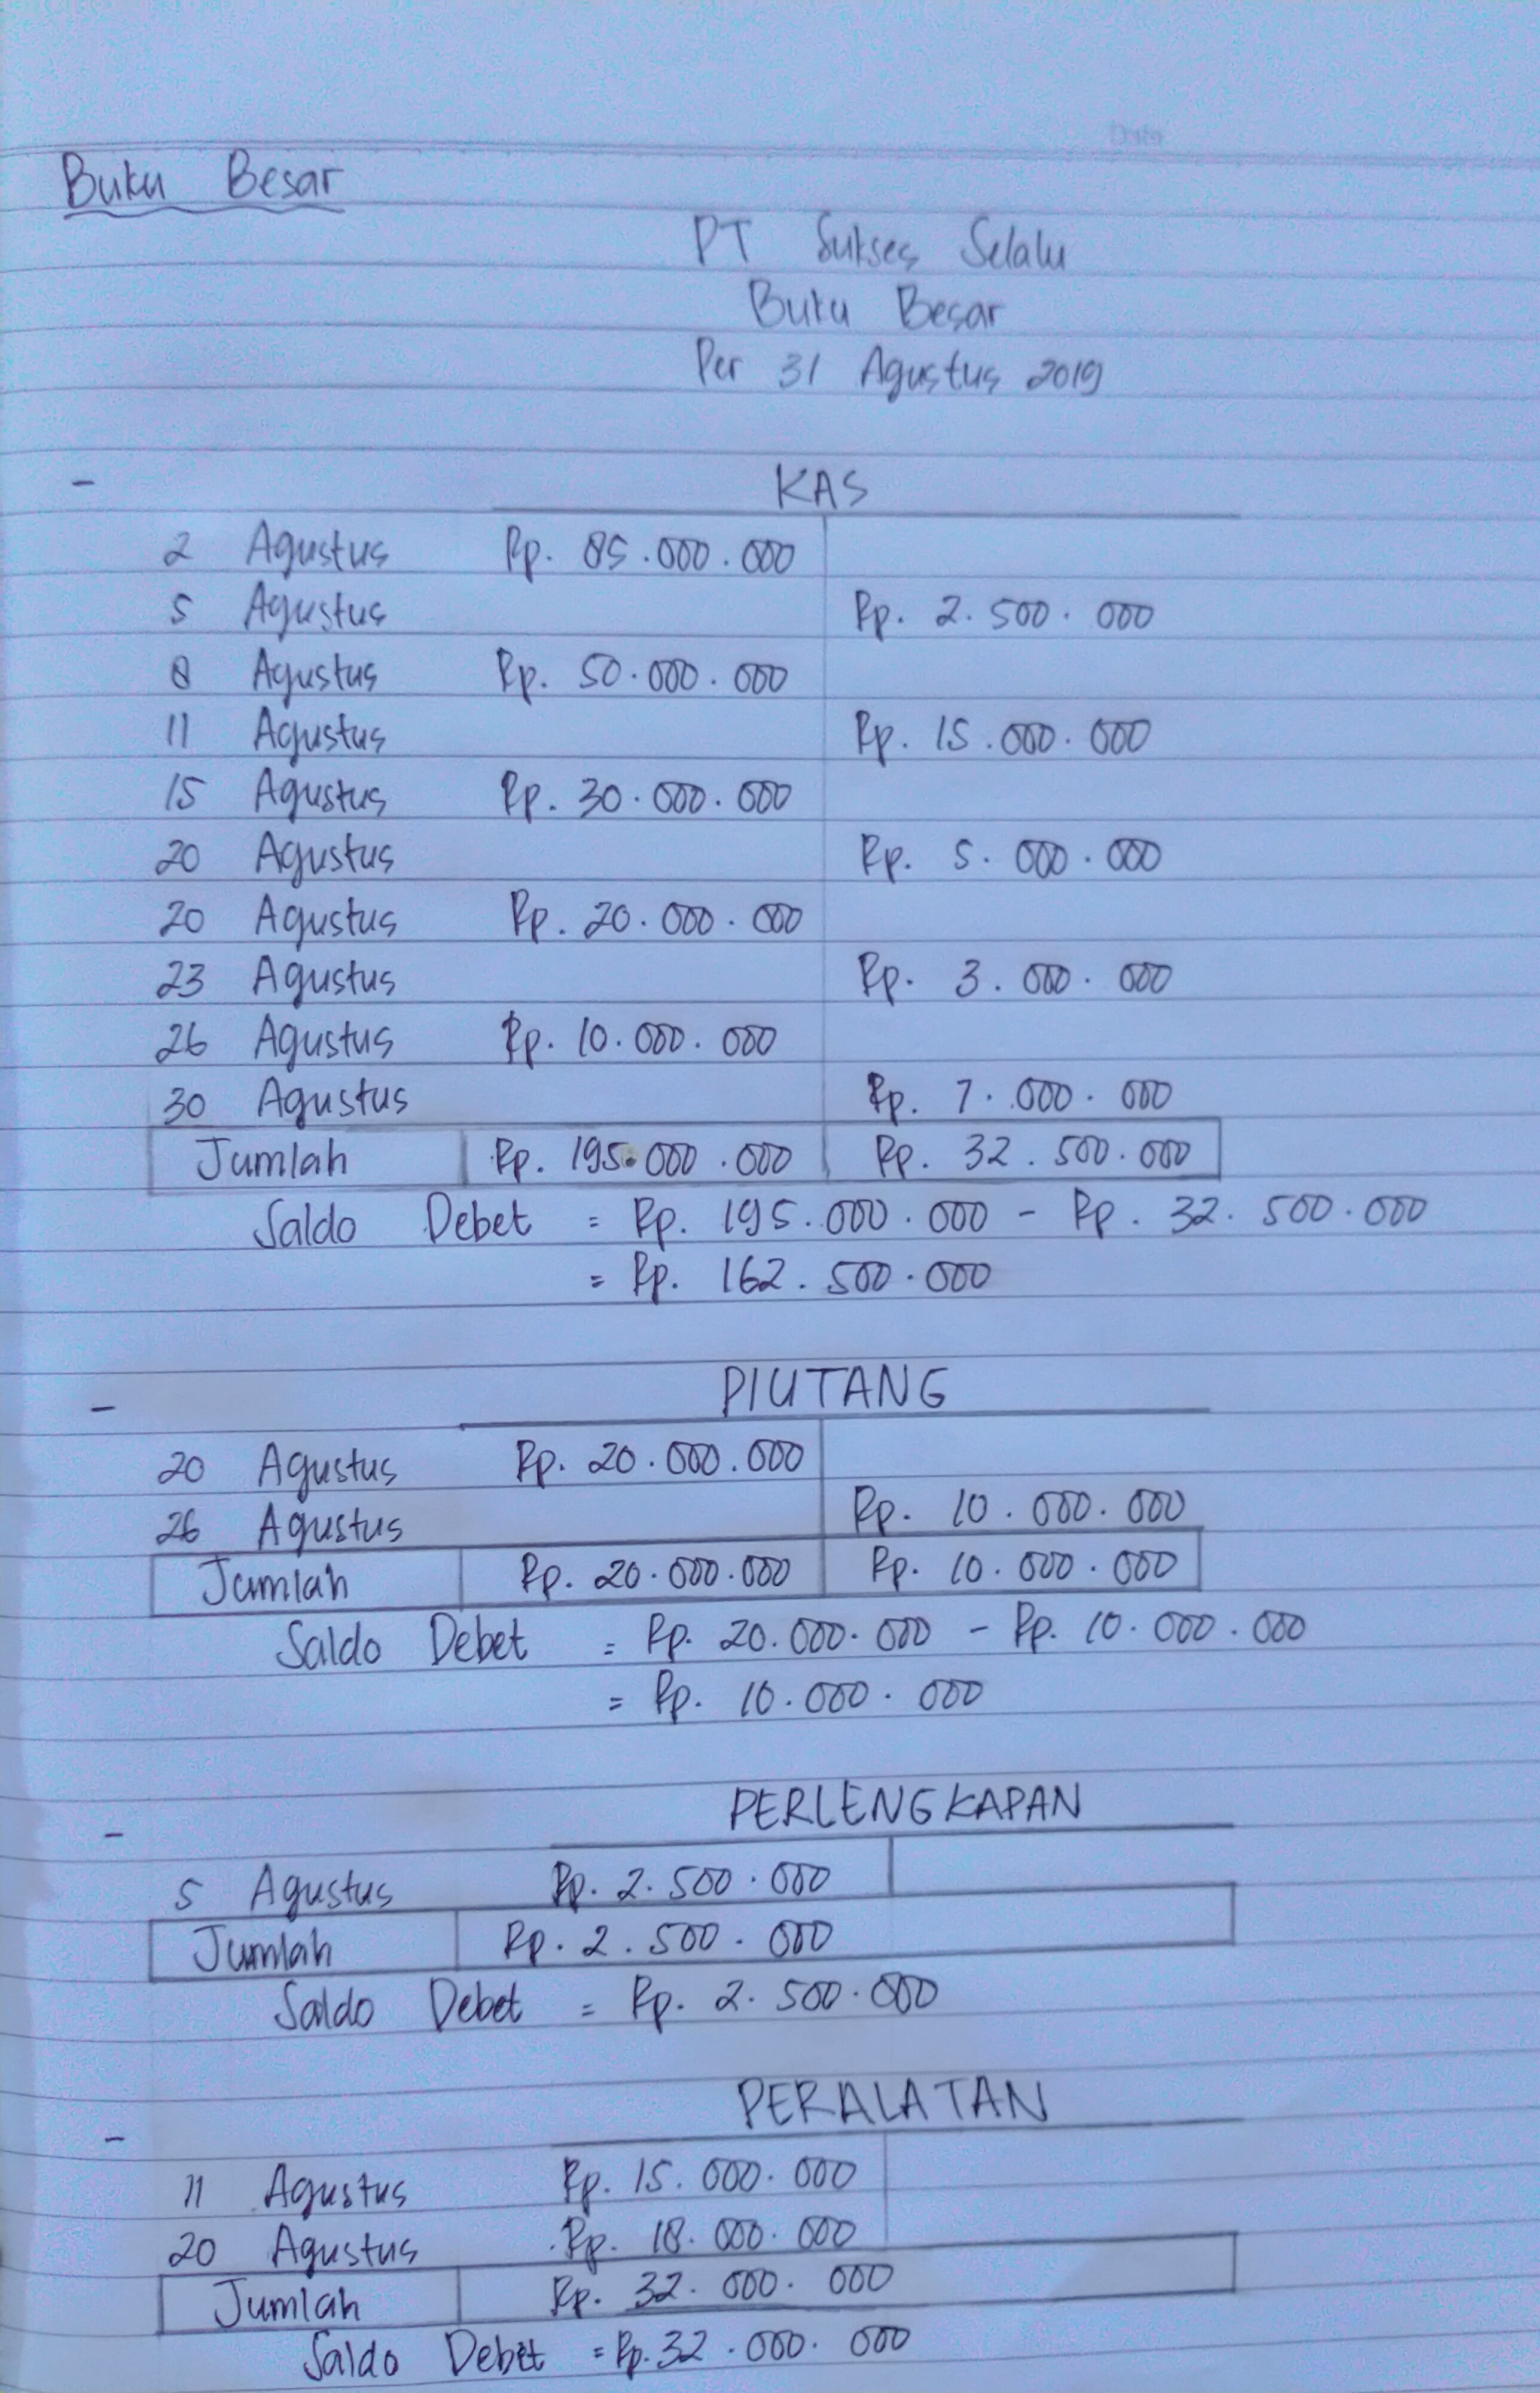 Date
Buku Besar
PT Sukses Selalu
Buku Besar
Per 31 Agustus 2019
- KAS
2 Agustus Rp. 85.000.000
5 Agustus Rp. 2.500.000
8 Agustus Rp. 50.000.000
11 Agustus Rp. 15.000.000
15 Agustus Rp. 30.000.000
20 Agustus Rp. 5.000.000
20 Agustus Rp. 20.000.000
23 Agustus Rp. 3.000.000
26 Agustus Rp. 10.000.000
30 Agustus Rp. 7.000.000
Jumlah Rp. 195.000.000 Rp. 32.500.000
Saldo Debet = Rp. 195.000.000 - Rp. 32.500.000
= Rp. 162.500.000
- PIUTANG
20 Agustus Rp. 20.000.000
26 Agustus Rp. 10.000.000
Jumlah Rp. 20.000.000 Rp. 10.000.000
Saldo Debet = Rp. 20.000.000 - Rp. 10.000.000
= Rp. 10.000.000
- PERLENGKAPAN
5 Agustus Rp. 2.500.000
Jumlah Rp. 2.500.000
Saldo Debet = Rp. 2.500.000
- PERALATAN
11 Agustus Rp. 15.000.000
20 Agustus Rp. 18.000.000
Jumlah Rp. 32.000.000
Saldo Debet = Rp. 32.000.000